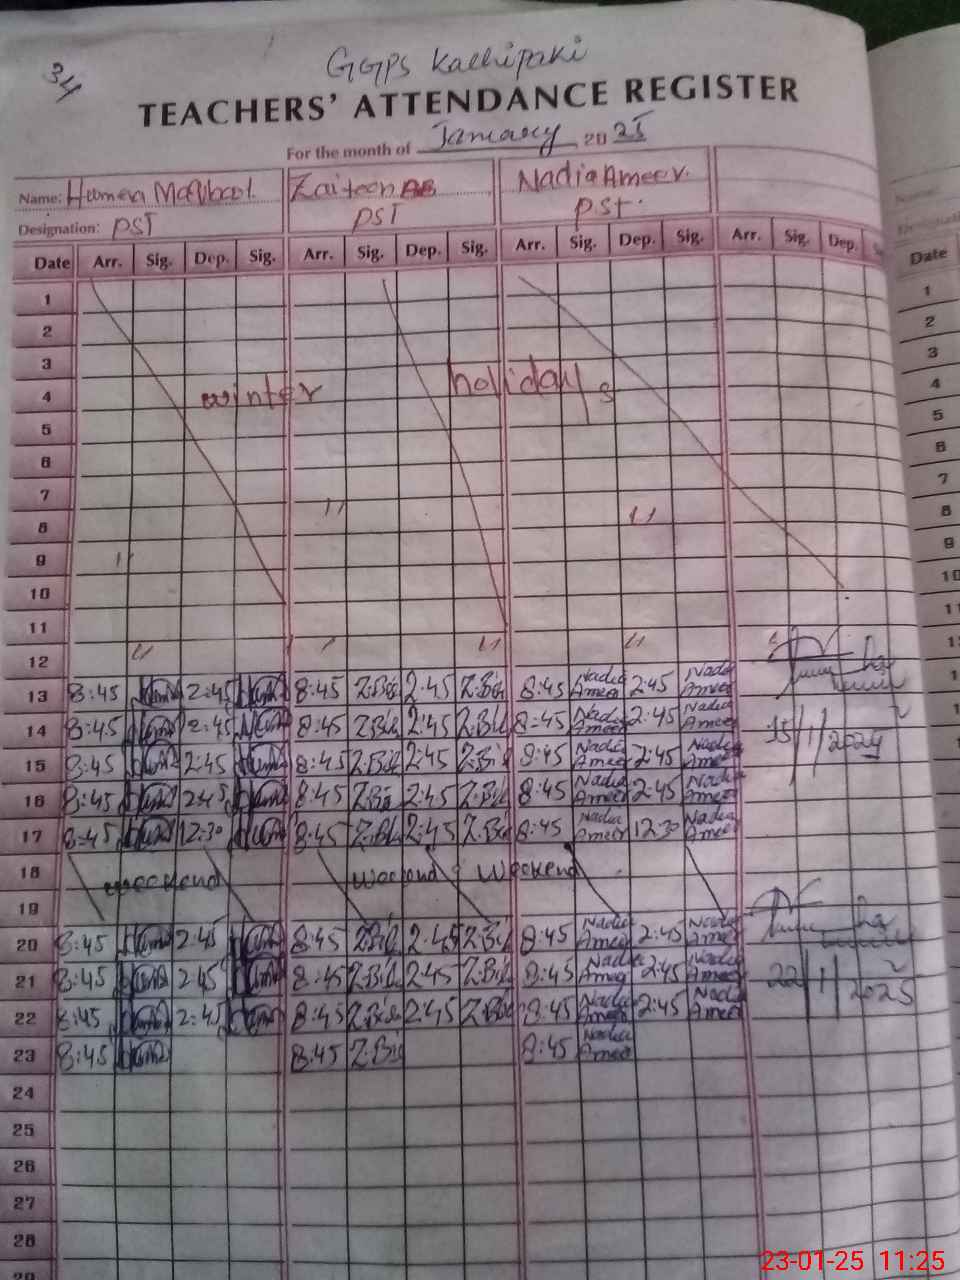 34
GGPS Kachipaki
TEACHERS' ATTENDANCE REGISTER
For the month of January, 20 25
Name: Humera Maqbool. Zaitoon Nadia Ameer.
Designation: PST PST PST.
Date Arr. Sig. Dep. Sig. Arr. Sig. Dep. Sig. Arr. Sig. Dep. Sig. Arr. Sig. Dep. Date
1 1
2 2
3 3
4 winter holidays 4
5 5
6 6
7 " 7
8 " 8
9 " 9
10 10
11 11
12 " " " "
13 8:45 2:45 8:45 Z.Bibi 2:45 Z.Bibi 8:45 Nadia Ameer 2:45 Nadia Ameer
14 8:45 2:45 8:45 Z.Bibi 2:45 Z.Bibi 8:45 Nadia Ameer 2:45 Nadia Ameer 15/1/2024
15 8:45 2:45 8:45 Z.Bibi 2:45 Z.Bibi 8:45 Nadia Ameer 2:45 Nadia Ameer
16 8:45 2:45 8:45 Z.Bibi 2:45 Z.Bibi 8:45 Nadia Ameer 2:45 Nadia Ameer
17 8:45 12:30 8:45 Z.Bibi 2:45 Z.Bibi 8:45 Nadia Ameer 12:30 Nadia Ameer
18 weekend weekend weekend
19
20 8:45 2:45 8:45 Z.Bibi 2:45 Z.Bibi 8:45 Nadia Ameer 2:45 Nadia Ameer
21 8:45 2:45 8:45 Z.Bibi 2:45 Z.Bibi 8:45 Nadia Ameer 2:45 Nadia Ameer 22/1/2025
22 8:45 2:45 8:45 Z.Bibi 2:45 Z.Bibi 8:45 Nadia Ameer 2:45 Nadia Ameer
23 8:45 8:45 Z.Bibi 8:45 Nadia Ameer
24
25
26
27
28
23-01-25 11:25